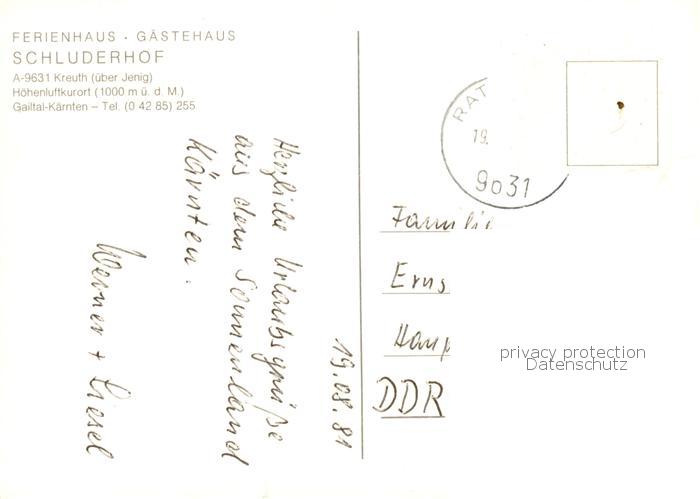 FERIENHAUS · GÄSTEHAUS
SCHLUDERHOF
A-9631 Kreuth (über Jenig)
Höhenluftkurort (1000 m ü. d. M.)
Gailtal-Kärnten – Tel. (0 42 85) 255
19.08.81
Herzliche Urlaubsgrüße
aus dem Sonnenland
Kärnten.
Werner + Liesel
RAT
19.
9031
Familie
Erns
Haup
DDR
privacy protection
Datenschutz